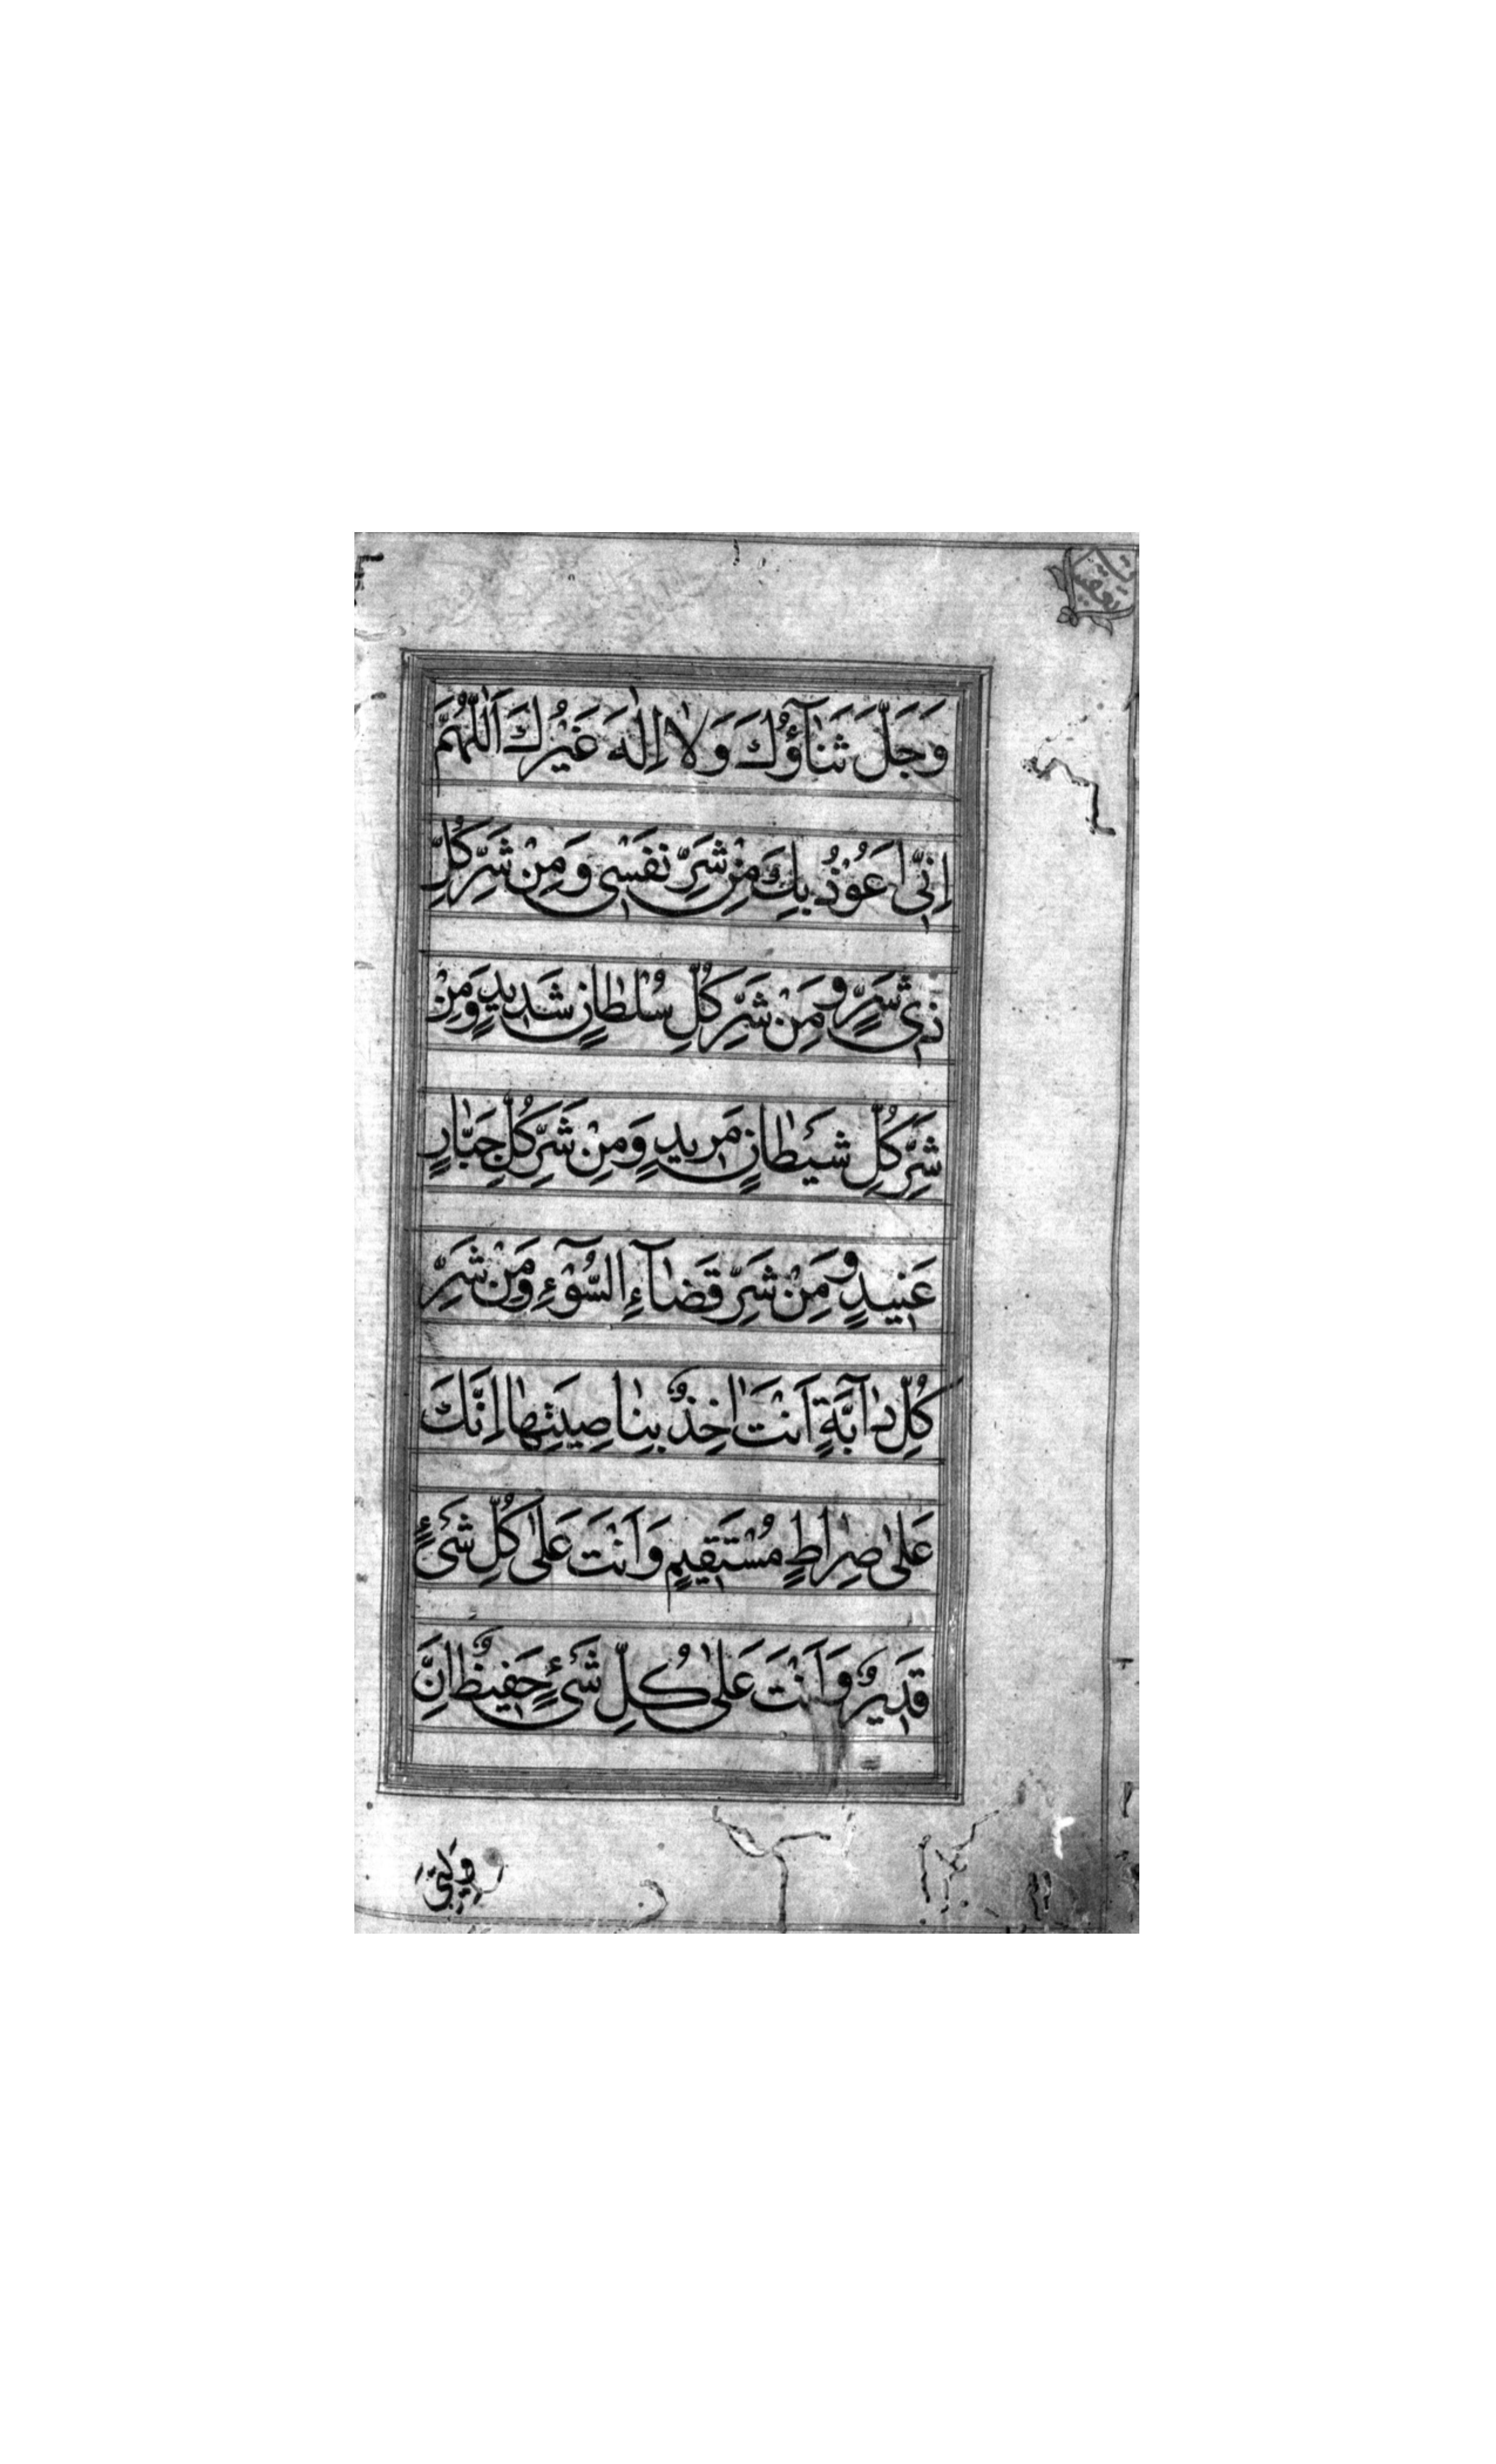 وَجَلَّ ثَنَآؤُكَ وَلَا اِلٰهَ غَيْرُكَ اَللّٰهُمَّ
اِنِّىٓ اَعُوْذُ بِكَ مِنْ شَرِّ نَفْسِى وَمِنْ شَرِّ كُلِّ
ذِى شَرٍّ وَمِنْ شَرِّ كُلِّ سُلْطَانٍ شَدِيدٍ وَمِنْ
شَرِّ كُلِّ شَيْطَانٍ مَرِيدٍ وَمِنْ شَرِّ كُلِّ جَبَّارٍ
عَنِيدٍ وَمِنْ شَرِّ قَضَآءِ السُّوْٓءِ وَمِنْ شَرِّ
كُلِّ دَآبَّةٍ اَنْتَ اٰخِذٌ بِنَاصِيَتِهَا اِنَّكَ
عَلٰى صِرَاطٍ مُسْتَقِيمٍ وَاَنْتَ عَلٰى كُلِّ شَىْءٍ
قَدِيرٌ وَاَنْتَ عَلٰى كُلِّ شَىْءٍ حَفِيظٌ اِنَّ
وَلِيِّىَ